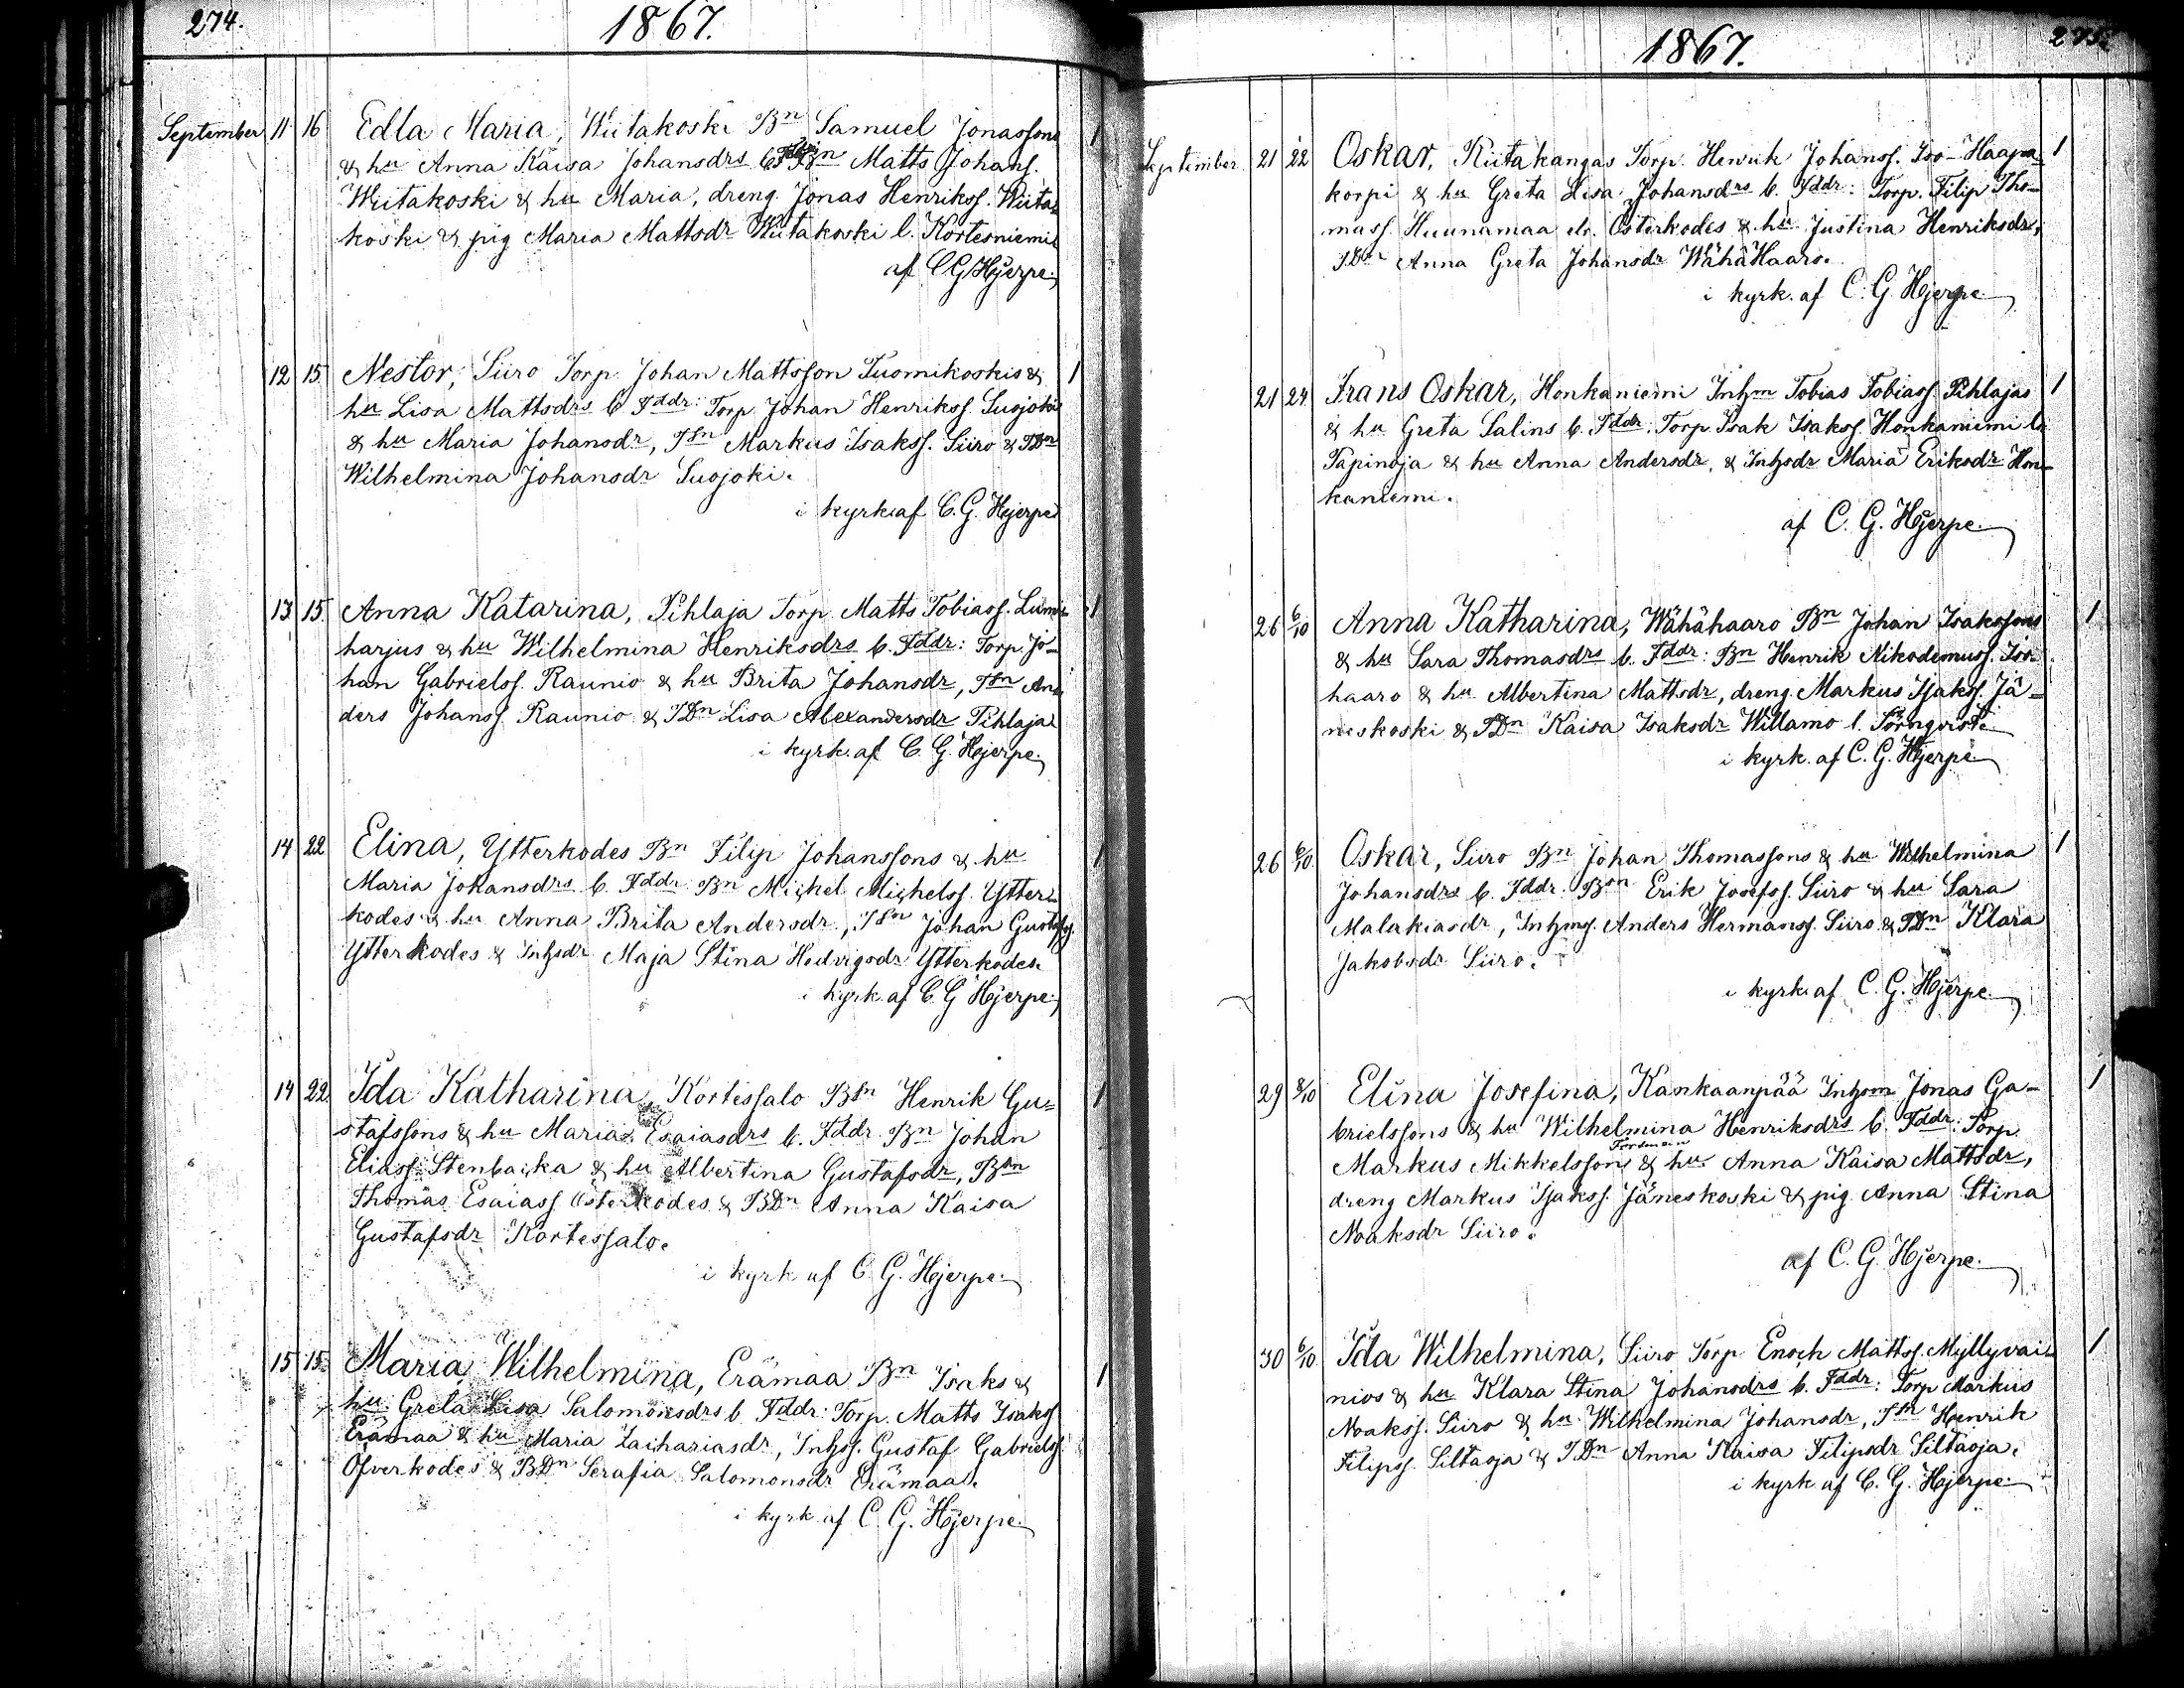 274.
1867.
September 11 16 Edla Maria, Wiitakoski Bn Samuel Jonassons 1
& hu Anna Kaisa Johansdrs b. Fddr: Bn Matts Johanss.
Wiitakoski & hu Maria, dreng Jonas Henrikss. Wiita-
koski & pig Maria Mattsdr Wiitakoski l. Kortesniemi.
af C G Hjerpe.
12 15 Nestor, Siiro Torp. Johan Mattsson Tuomikoskis & 1
hu Lisa Mattsdrs b. Fddr: Torp. Johan Henrikss. Suojoki
& hu Maria Johansdr, TSn Markus Isakss. Siiro & TDn
Wilhelmina Johansdr Suojoki.
i kyrk. af C. G. Hjerpe
13 15 Anna Katarina, Pihlaja Torp. Matts Tobiass. Lumi- 1
harjus & hu Wilhelmina Henriksdrs b. Fddr: Torp. Jo-
han Gabrielss. Raunio & hu Brita Johansdr, TSn An-
ders Johanss. Raunio & TDn Lisa Alexandersdr Pihlaja
i kyrk. af C. G. Hjerpe.
14 22 Elina, Ytterkodes Bn Filip Johanssons & hu 1
Maria Johansdrs b. Fddr: Bn Michel Michelss. Ytter-
kodes & hu Anna Brita Andersdr, TSn Johan Gustafss.
Ytterkodes & Inhsdr Maja Stina Hedvigsdr Ytterkodes.
i kyrk. af C. G Hjerpe.
14 22 Ida Katharina, Kortessalo BSn Henrik Gu- 1
stafssons & hu Marias Esaiasdrs b. Fddr: Bn Johan
Eliass. Stenbacka & hu Albertina Gustafsdr, BSn
Thomas Esaiass Österkodes & BDn Anna Kaisa
Gustafsdr Kortessalo.
i kyrk. af C. G. Hjerpe.
15 15 Maria Wilhelmina, Erämaa Bn Isaks & 1
hu Greta Lisa Salomonsdrs b. Fddr: Torp. Matts Isakss
Erämaa & hu Maria Zachariasdr, Inhss. Gustaf Gabrielss.
Öfverkodes & BDn Serafia Salomonsdr Erämaa.
i kyrk. af C. G. Hjerpe.
1867.
275.
September 21 22 Oskar, Riitakangas Torp. Henrik Johanss. Iso-Haapa- 1
korpi & hu Greta Lisa Johansdrs b. Fddr: Torp. Filip Tho-
mass. Huunamaa el. Österkodes & hu Justina Henriksdr,
TDn Anna Greta Johansdr WähäHaaro.
i kyrk. af C. G Hjerpe.
21 24 Frans Oskar, Honkaniemi Inhm Tobias Tobiass. Pihlajas 1
& hu Greta Salins b. Fddr: Torp. Isak Isakss. Honkaniemi l.
Tapinoja & hu Anna Andersdr, & Inhsdr Maria Eriksdr Hon-
kaniemi.
af C. G. Hjerpe.
26 6/10 Anna Katharina, Wähähaaro Bn Johan Isakssons 1
& hu Sara Thomasdrs b. Fddr: Bn Henrik Nikodemuss. Iso-
haaro & hu Albertina Mattsdr, dreng Markus Isakss. Jä-
neskoski & TDn Kaisa Isaksdr Willamo l. Törnqvist.
i kyrk. af C. G. Hjerpe.
26 6/10 Oskar, Siiro Bn Johan Thomassons & hu Wilhelmina 1
Johansdrs b. Fddr: BSn Erik Josefss. Siiro & hu Sara
Malakiasdr, Inhmss. Anders Hermanss. Siiro & TDn Klara
Jakobsdr Siiro.
i kyrk. af C. G. Hjerpe.
29 8/10 Elina Josefina, Kankaanpää Inhsm Jonas Ga- 1
brielssons & hu Wilhelmina Henriksdrs b. Fddr: Torp.
Markus Mikkelsson & hu Anna Kaisa Mattsdr,
dreng Markus Isakss. Jäneskoski & pig Anna Stina
Noaksdr Siiro.
af C. G. Hjerpe.
30 6/10 Ida Wilhelmina, Siiro Torp. Enoch Mattss. Myllyvai- 1
nios & hu Klara Stina Johansdrs b. Fddr: Torp. Markus
Noakss. Siiro & hu Wilhelmina Johansdr, TSn Henrik
Filipss. Siltaoja & TDn Anna Kaisa Filipsdr Siltaoja.
i kyrk. af C. G. Hjerpe.